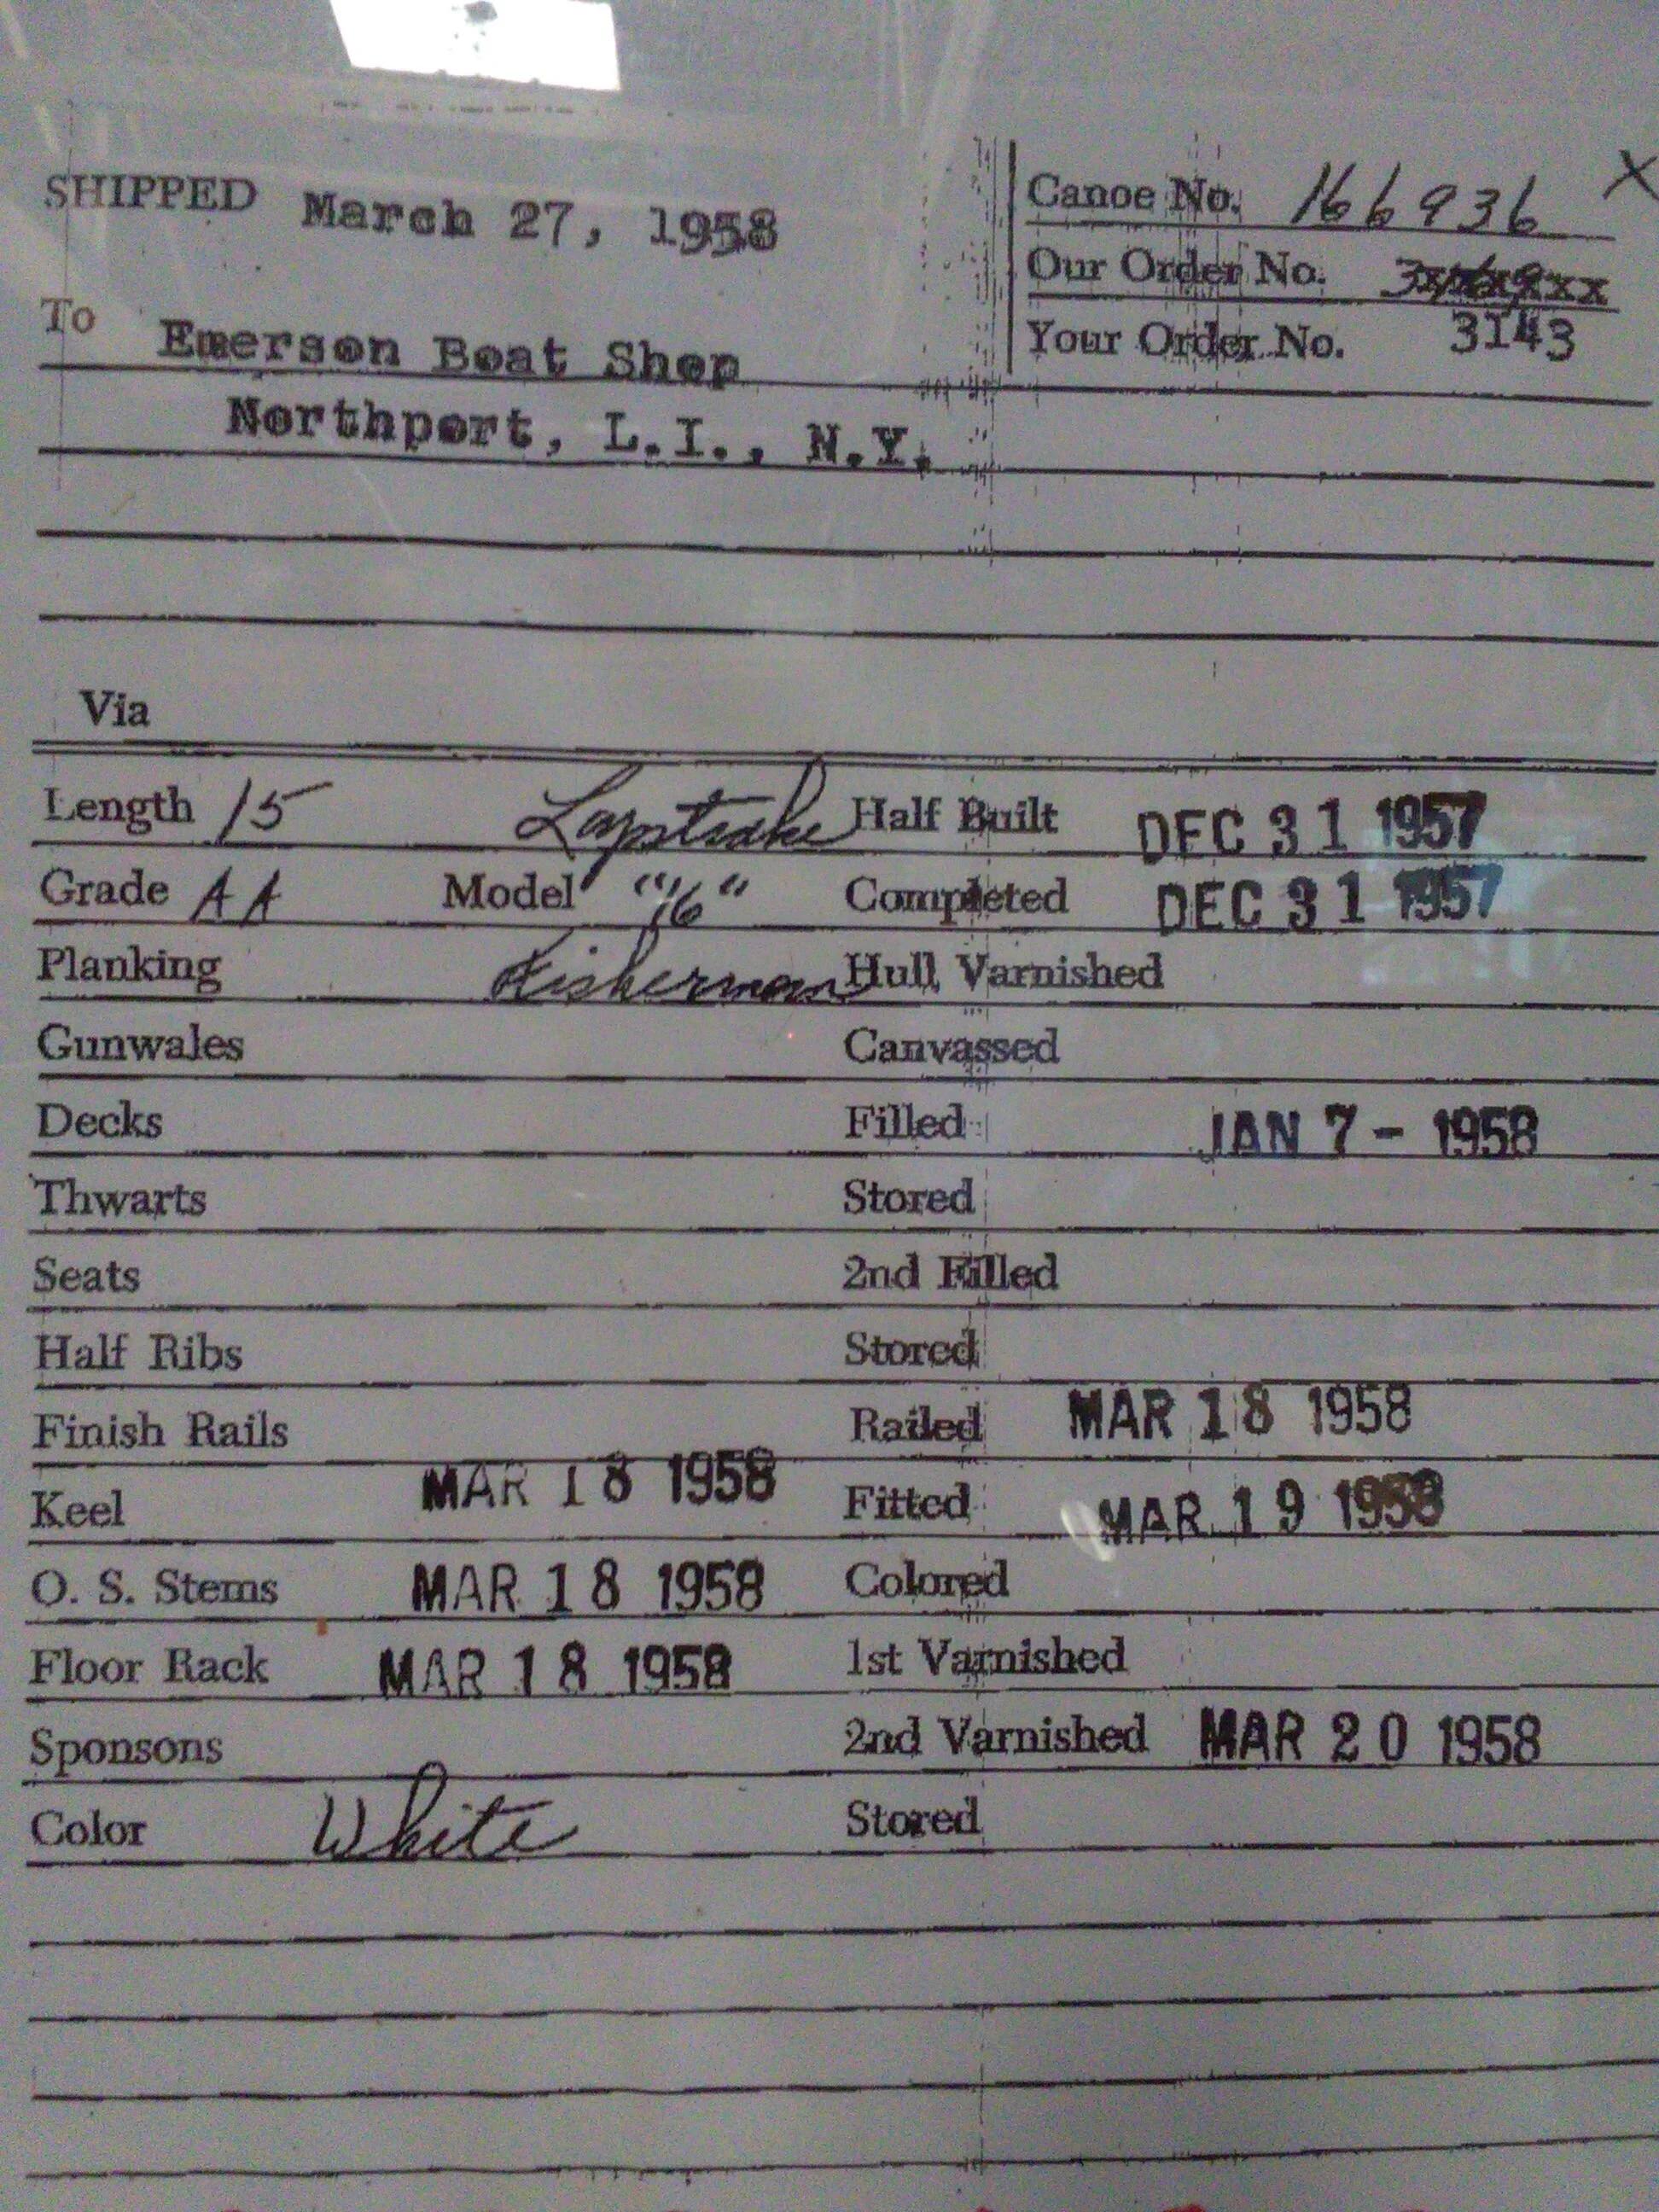 SHIPPED March 27, 1958
Canoe No. 166936 X
Our Order No.
To Emerson Boat Shop
Your Order No. 3143
Northport, L.I., N.Y.
Via
Length 15 Lapstrake Half Built DEC 31 1957
Grade AA Model "16" Completed DEC 31 1957
Planking Fisherman Hull Varnished
Gunwales Canvassed
Decks Filled JAN 7 - 1958
Thwarts Stored
Seats 2nd Filled
Half Ribs Stored
Finish Rails Railed MAR 18 1958
Keel MAR 18 1958 Fitted MAR 19 1958
O. S. Stems MAR 18 1958 Colored
Floor Rack MAR 18 1958 1st Varnished
Sponsons 2nd Varnished MAR 20 1958
Color White Stored